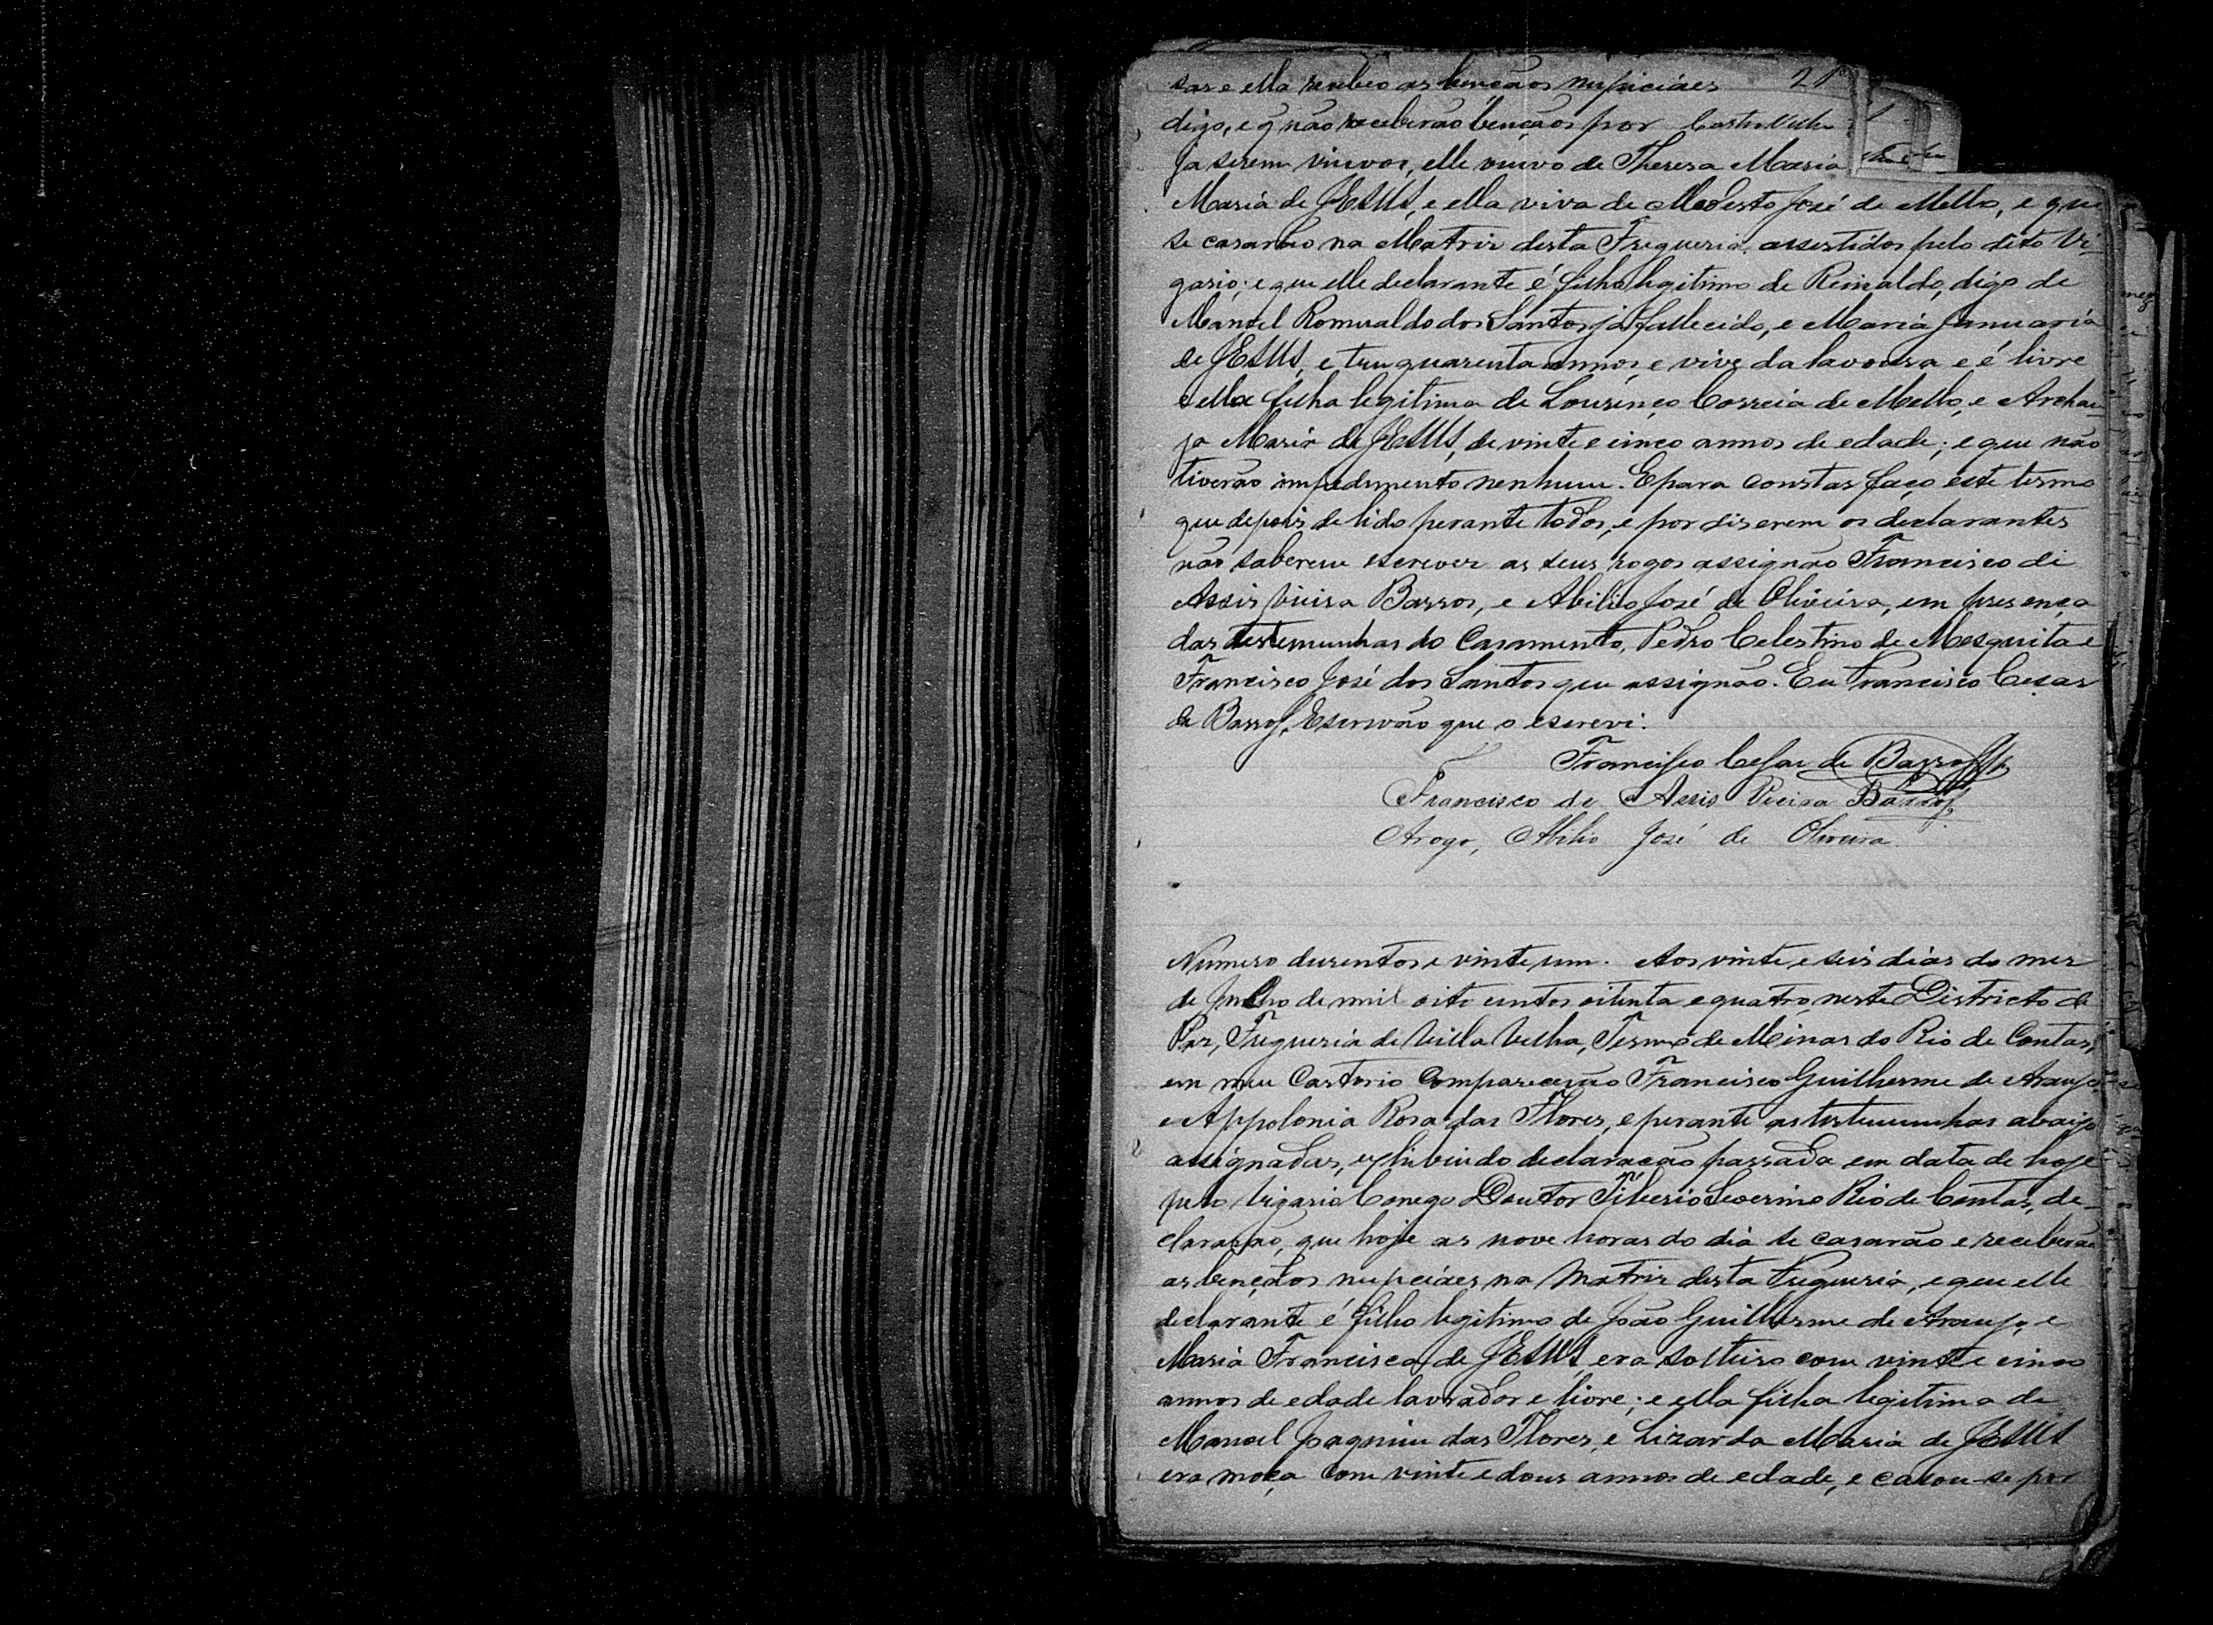 sar e ella recebeo as bençãos nupiciáes 21
digo, e q̃ não receberão bençãos por
ja serem viuvos, elle viuvo de Theresa Maria
Maria de JESUS, e ella viva de Modesto José de Mello, e que
se casarão na Matriz desta Freguesia assestidos pelo dito Vi-
gario; e que elle declarante é filho legitimo de Reinaldo, digo de
Manoel Romualdo dos Santos já fallecido, e Maria Januaria
de JESUS, e tem quarenta annos, e vive da lavoura e é livre
e ella filha legitima de Lourenço Correia de Mello, e Archan-
ja Maria de JESUS, de vinte e cinco annos de edade; e que não
tiverão impedimento nenhum. E para constar faço este termo
que depois de lido perante todos, e por diserem os declarantes
não saberem escrever as seus rogos assignão Francisco de
Assis Vieira Barros, e Abilio José de Oliveira, em presença
das testemunhas do Casamento, Pedro Celestino de Mesquita e
Francisco José dos Santos que assignão. Eu Francisco Cesar
de Barros, Escrivão que o escrevi.
Francisco Cesar de Barros
Francisco de Assis Vieira Barros
Arogo, Abilio José de Oliveira
Numero dusentos e vinte um. Aos vinte e seis dias do mez
de Julho de mil oito centos oitenta e quatro, neste Districto de
Paz, Freguesia de Villa Velha, Termo de Minas do Rio de Contas,
em meu Cartorio Comparecerão Francisco Guilherme de Araujo
e Appolonia Rosa das Flores, e perante as testemunhas abaixo
assignadas, exhivindo declaração passada em data de hoje
pelo Vigario Conego Doutor Tiberio Severino Rio de Contas, de-
clararão, que hoje as nove horas do dia se casarão e receberão
as bençãos nupciáes na Matriz desta Freguesia, e que elle
declarante é filho legitimo de João Guilherme de Araujo, e
Maria Francisca de JESUS, era solteiro com vinte e cinco
annos de edade lavrador e livre; e ella filha legitima de
Manoel Joaquim das Flores, e Lizarda Maria de JESUS
era moça com vinte e dous annos de edade, e casou-se por